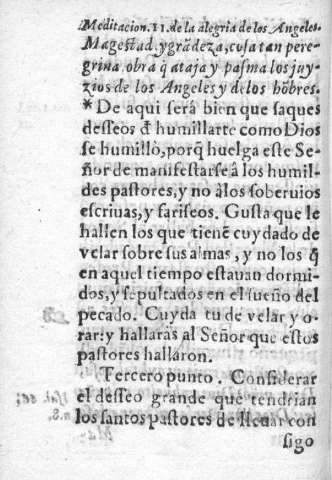 Meditacion. 11. de la alegria de los Angeles.
Magestad, y grãdeza, cosa tan pere-
grina, obra q̃ ataja y pasma los juy-
zios de los Angeles y de los hõbres.
* De aqui será bien que saques
desseos đ humillarte como Dios
se humillò, porq̃ huelga este Se-
ñor de manifestarse à los humil-
des pastores, y no à los soberuios
escriuas, y fariseos. Gusta que le
hallen los que tienẽ cuydado de
velar sobre sus almas, y no los q̃
en aquel tiempo estauan dormi-
dos, y sepultados en el sueño del
pecado. Cuyda tu de velar y o-
rar: y hallaràs al Señor que estos
pastores hallaron.
Tercero punto. Considerar
el desseo grande que tendrian
los santos pastores de lleuar con
sigo